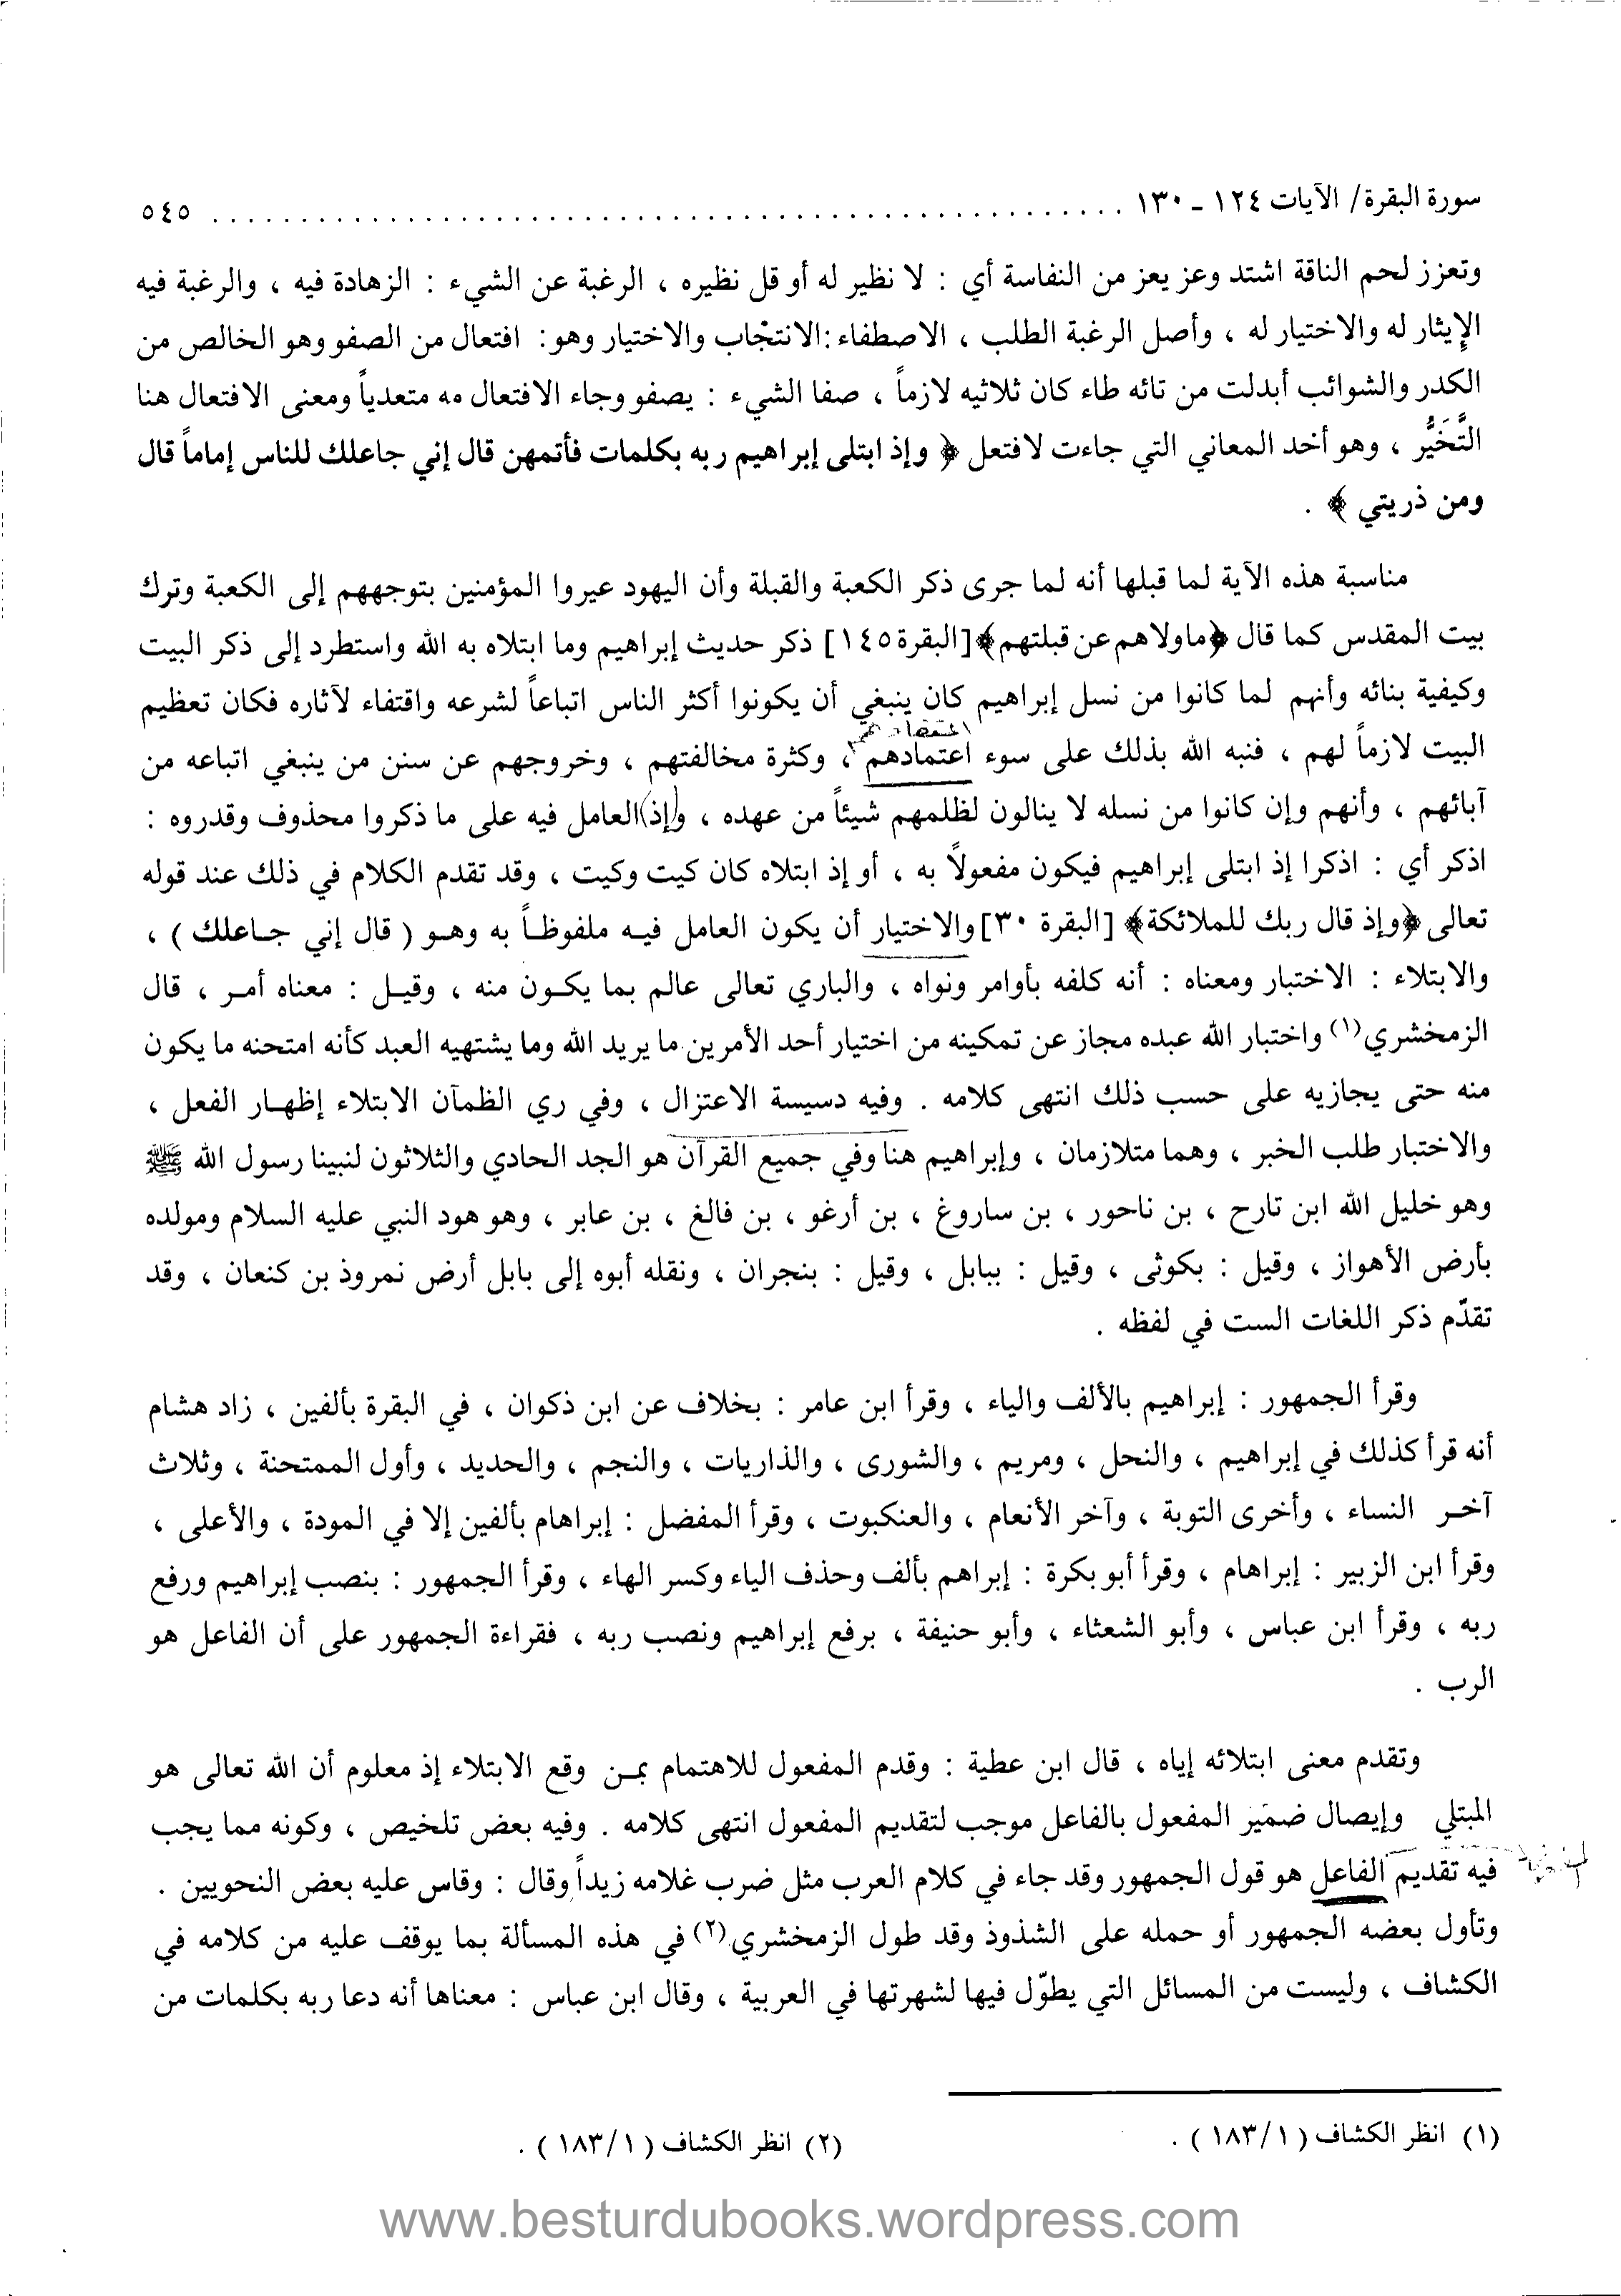 سورة البقرة/ الآيات ١٢٤ ـ ١٣٠ ........................................................ ٥٤٥
وتعزز لحم الناقة اشتد وعز يعز من النفاسة أي : لا نظير له أو قل نظيره ، الرغبة عن الشيء : الزهادة فيه ، والرغبة فيه
الإيثار له والاختيار له ، وأصل الرغبة الطلب ، الاصطفاء :الانتجاب والاختيار وهو: افتعال من الصفو وهو الخالص من
الكدر والشوائب أبدلت من تائه طاء كان ثلاثيه لازماً ، صفا الشيء : يصفو وجاء الافتعال مه متعدياً ومعنى الافتعال هنا
التَّخَيُّر ، وهو أخد المعاني التي جاءت لافتعل ﴿ وإذ ابتلى إبراهيم ربه بكلمات فأتمهن قال إني جاعلك للناس إماماً قال
ومن ذريتي ﴾ .
مناسبة هذه الآية لما قبلها أنه لما جرى ذكر الكعبة والقبلة وأن اليهود عيروا المؤمنين بتوجههم إلى الكعبة وترك
بيت المقدس كما قال ﴿ماولاهم عن قبلتهم﴾[البقرة ١٤٥] ذكر حديث إبراهيم وما ابتلاه به الله واستطرد إلى ذكر البيت
وكيفية بنائه وأنهم لما كانوا من نسل إبراهيم كان ينبغي أن يكونوا أكثر الناس اتباعاً لشرعه واقتفاء لآثاره فكان تعظيم
البيت لازماً لهم ، فنبه الله بذلك على سوء اعتمادهم ، وكثرة مخالفتهم ، وخروجهم عن سنن من ينبغي اتباعه من
آبائهم ، وأنهم وإن كانوا من نسله لا ينالون لظلمهم شيئاً من عهده ، و(إذ)العامل فيه على ما ذكروا محذوف وقدروه :
اذكر أي : اذكرا إذ ابتلى إبراهيم فيكون مفعولاً به ، أو إذ ابتلاه كان كيت وكيت ، وقد تقدم الكلام في ذلك عند قوله
تعالى ﴿وإذ قال ربك للملائكة﴾ [البقرة ٣٠] والاختيار أن يكون العامل فيه ملفوظاً به وهو ( قال إني جاعلك ) ،
والابتلاء : الاختبار ومعناه : أنه كلفه بأوامر ونواه ، والباري تعالى عالم بما يكون منه ، وقيل : معناه أمر ، قال
الزمخشري(١) واختبار الله عبده مجاز عن تمكينه من اختيار أحد الأمرين ما يريد الله وما يشتهيه العبد كأنه امتحنه ما يكون
منه حتى يجازيه على حسب ذلك انتهى كلامه . وفيه دسيسة الاعتزال ، وفي ري الظمآن الابتلاء إظهار الفعل ،
والاختبار طلب الخبر ، وهما متلازمان ، وإبراهيم هنا وفي جميع القرآن هو الجد الحادي والثلاثون لنبينا رسول الله ﷺ
وهو خليل الله ابن تارح ، بن ناحور ، بن ساروغ ، بن أرغو ، بن فالغ ، بن عابر ، وهو هود النبي عليه السلام ومولده
بأرض الأهواز ، وقيل : بكوثى ، وقيل : ببابل ، وقيل : بنجران ، ونقله أبوه إلى بابل أرض نمروذ بن كنعان ، وقد
تقدّم ذكر اللغات الست في لفظه .
وقرأ الجمهور : إبراهيم بالألف والياء ، وقرأ ابن عامر : بخلاف عن ابن ذكوان ، في البقرة بألفين ، زاد هشام
أنه قرأ كذلك في إبراهيم ، والنحل ، ومريم ، والشورى ، والذاريات ، والنجم ، والحديد ، وأول الممتحنة ، وثلاث
آخر النساء ، وأخرى التوبة ، وآخر الأنعام ، والعنكبوت ، وقرأ المفضل : إبراهام بألفين إلا في المودة ، والأعلى ،
وقرأ ابن الزبير : إبراهام ، وقرأ أبو بكرة : إبراهم بألف وحذف الياء وكسر الهاء ، وقرأ الجمهور : بنصب إبراهيم ورفع
ربه ، وقرأ ابن عباس ، وأبو الشعثاء ، وأبو حنيفة ، برفع إبراهيم ونصب ربه ، فقراءة الجمهور على أن الفاعل هو
الرب .
وتقدم معنى ابتلائه إياه ، قال ابن عطية : وقدم المفعول للاهتمام بمن وقع الابتلاء إذ معلوم أن الله تعالى هو
المبتلي وإيصال ضمير المفعول بالفاعل موجب لتقديم المفعول انتهى كلامه . وفيه بعض تلخيص ، وكونه مما يجب
فيه تقديم الفاعل هو قول الجمهور وقد جاء في كلام العرب مثل ضرب غلامه زيداً وقال : وقاس عليه بعض النحويين .
وتأول بعضه الجمهور أو حمله على الشذوذ وقد طول الزمخشري(٢) في هذه المسألة بما يوقف عليه من كلامه في
الكشاف ، وليست من المسائل التي يطوّل فيها لشهرتها في العربية ، وقال ابن عباس : معناها أنه دعا ربه بكلمات من
(١) انظر الكشاف ( ١/ ١٨٣ ) .
(٢) انظر الكشاف ( ١/ ١٨٣ ) .
www.besturdubooks.wordpress.com